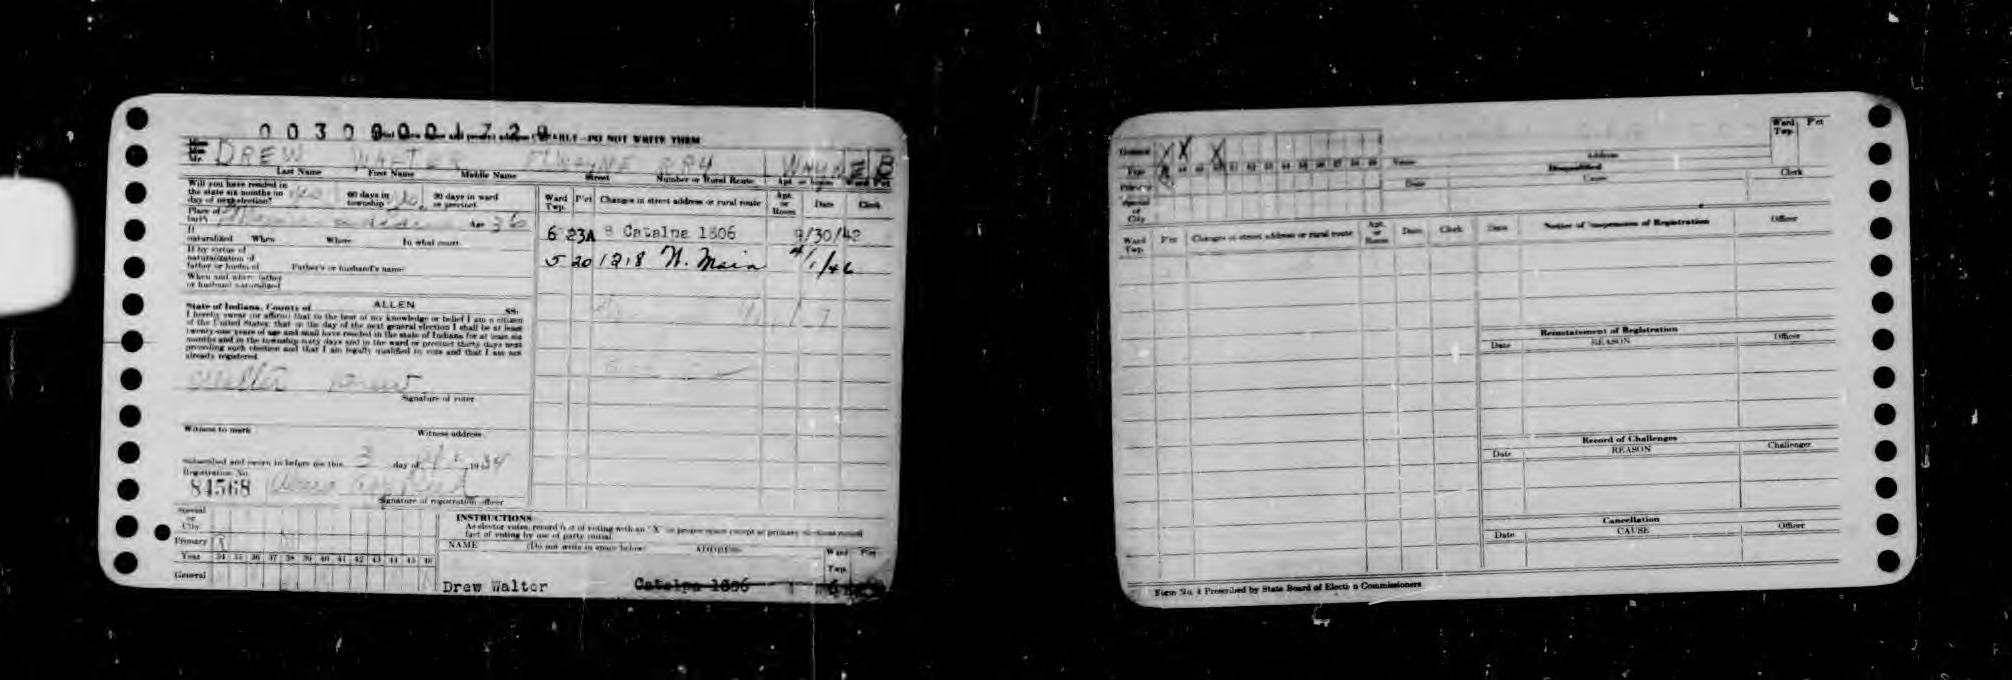 00300001729
ABLY - DO NOT WRITE THEM
Mr. DREW WALTER FT WAYNE RR4 WAYNE B
Last Name First Name Middle Name Street Number or Rural Route Apt. Ward Pct
Will you have resided in the state six months on day of next election? Yes 60 days in township 30 days in ward or precinct
Place of birth Age 36
If naturalized When Where In what court
If by virtue of naturalization of father or husband Father's or husband's name
When and where father or husband naturalized
State of Indiana, County of ALLEN SS:
I hereby swear (or affirm) that to the best of my knowledge or belief I am a citizen
of the United States; that on the day of the next general election I shall be at least
twenty-one years of age and shall have resided in the state of Indiana for at least six
months and in the township sixty days and in the ward or precinct thirty days next
preceding such election and that I am legally qualified to vote and that I am not
already registered.
Walter Drew
Signature of voter
Witness to mark Witness address
Subscribed and sworn to before me this 3 day of 1934
Registration No.
84568
Signature of registration officer
Ward Twp. P'ct Changes in street address or rural route Apt. or Room Date Clerk
6 23A 8 Catalpa 1806 9/30/42
5 20 1218 W. Main 4/1/46
Special or City
Primary
Year 34 35 36 37 38 39 40 41 42 43 44 45 46
General
INSTRUCTIONS
As elector votes, record fact of voting with an "X" in proper space except at primary elections record
fact of voting by use of party initial.
NAME (Do not write in space below) ADDRESS Ward Twp. P'ct
Drew Walter Catalpa 1806 6
General X X X
Year
Primary
Special or City
Name Address Ward Twp. P'ct
Disqualified
Date Cause Clerk
Ward Twp. P'ct Changes in street address or rural route Apt. or Room Date Clerk
Date Notice of Suspension of Registration Officer
Reinstatement of Registration
Date REASON Officer
Record of Challenges
Date REASON Challenger
Cancellation
Date CAUSE Officer
Form No. 4 Prescribed by State Board of Election Commissioners